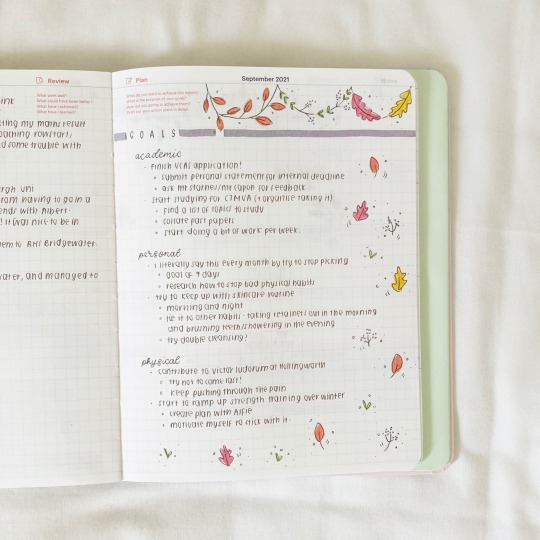 Review
What went well?
What could have been better?
What have I learned?
ink
ting my maths result
oaching rowstart,
d some trouble with
rgh uni
ram having to go in a
ends with Albert.
! it was nice to be in
hem to RHS Bridgewater.
ater, and managed to
Plan
September 2021
What do you want to achieve this month?
What is the purpose of your goals?
How are you going to achieve them?
GOALS
academic
- finish UCAS application!
submit personal statement for internal deadline
ask mr starnes/mr capon for feedback
- start studying for CTMUA (+ organise taking it)
find a list of topics to study
collate past papers
start doing a bit of work per week.
personal
- i literally say this every month by try to stop picking
goal of 7 days
research how to stop bad physical habits
- try to keep up with skincare routine
morning and night
tie it to other habits - taking retainers out in the morning
and brushing teeth/showering in the evening
try double cleansing?
physical
- contribute to victor ludorum at Hollingworth
try not to come last!
keep pushing through the pain
- start to ramp up strength training over winter
create plan with Alfie
motivate myself to stick with it.